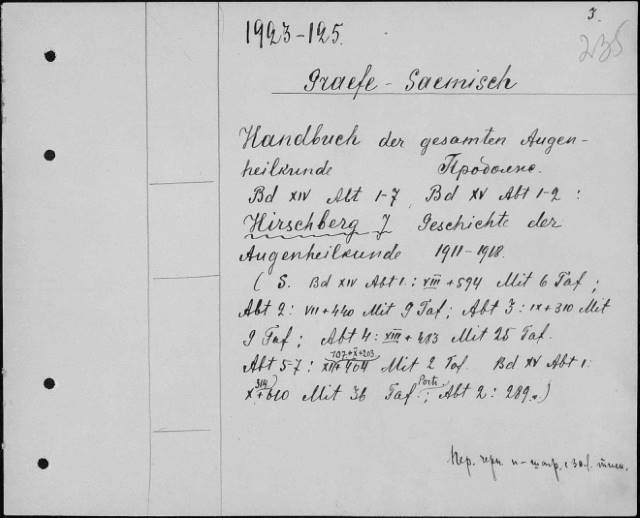 3.
1923-125.
235
Graefe - Saemisch
Handbuch der gesamten Augen-
heilkunde Продолж.
Bd XIV Abt 1-7, Bd XV Abt 1-2 :
Hirschberg J Geschichte der
Augenheilkunde 1911-1918.
( S. Bd XIV Abt 1 : VIII + 594 Mit 6 Taf ;
Abt 2 : VII + 440 Mit 9 Taf ; Abt 3 : IX + 310 Mit
9 Taf ; Abt 4 : VIII + 413 Mit 25 Taf.
107+X+203
Abt 5-7 : XII + 404 Mit 2 Taf. Bd XV Abt 1 :
314 Portr
X + 610 Mit 36 Taf. ; Abt 2 : 289.)
Пер. черн.